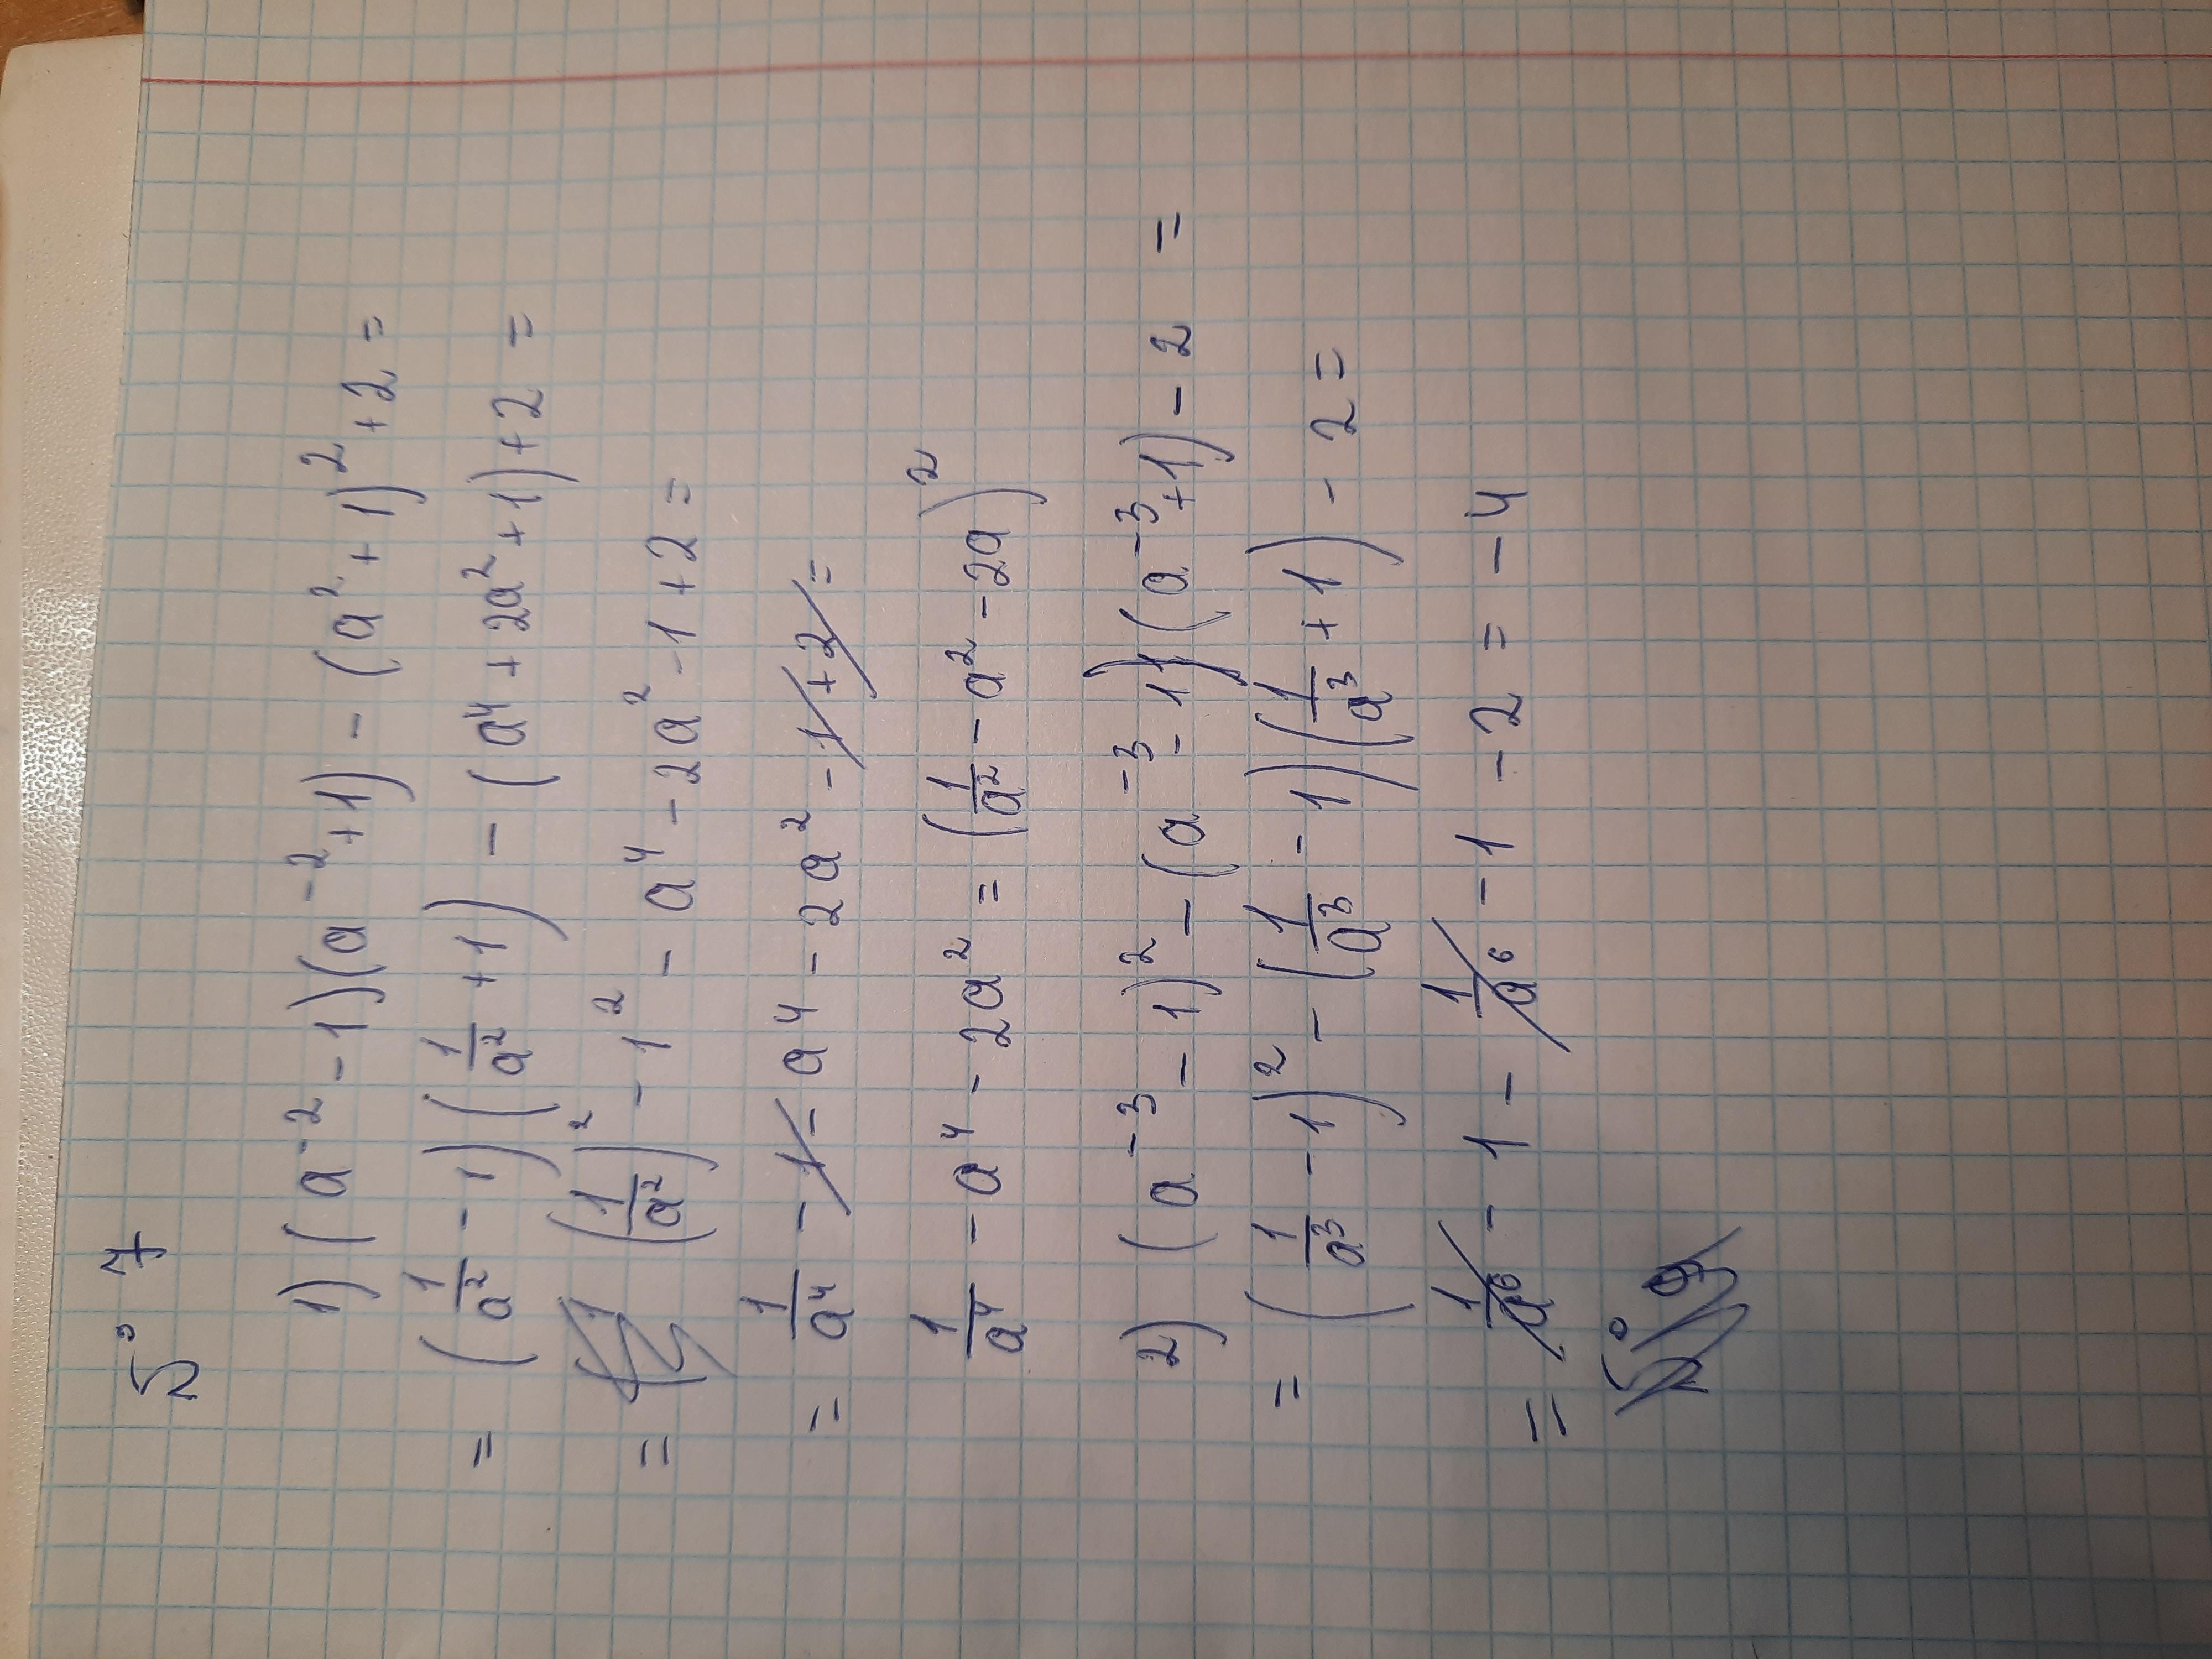 № 7
1) (a⁻² - 1)(a⁻² + 1) - (a² + 1)² + 2 =
= (1/a² - 1)(1/a² + 1) - (a⁴ + 2a² + 1) + 2 =
= (1/a²)² - 1² - a⁴ - 2a² - 1 + 2 =
= 1/a⁴ - 1 - a⁴ - 2a² - 1 + 2 =
1/a⁴ - a⁴ - 2a² = (1/a² - a² - 2a)²
2) (a⁻³ - 1)² - (a⁻³ - 1)(a⁻³ + 1) - 2 =
= (1/a³ - 1)² - (1/a³ - 1)(1/a³ + 1) - 2 =
= 1/a⁶ - 1 - 1/a⁶ - 1 - 2 = - 4
№ 9